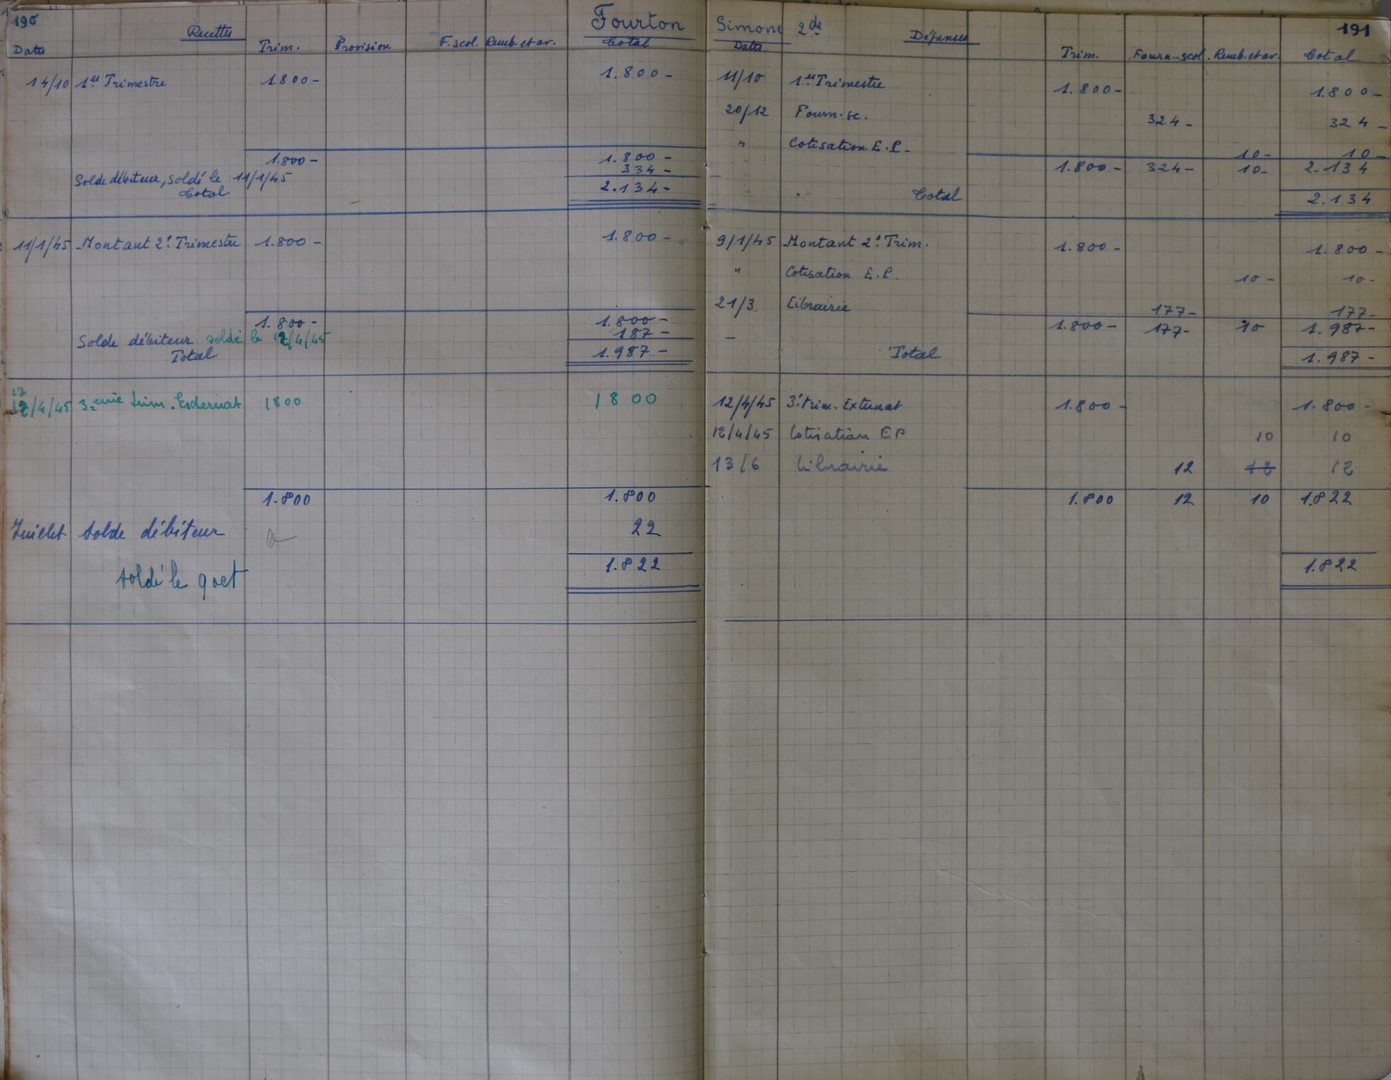 190 Recettes Fourton
Date Trim. Provision F. scol. Remb. et av. Total
14/10 1er Trimestre 1.800- 1.800-
1.800- 1.800-
Solde débiteur, soldé le 11/1/45 334-
Total 2.134-
11/1/45 Montant 2e Trimestre 1.800- 1.800-
1.800- 1.800-
Solde débiteur soldé le 12/4/45 187-
Total 1.987-
12/4/45 3eme trim. Externat 1800 1800
1.800 1.800
Juillet Solde débiteur 22
1.822
soldé le 9 oct
Simone 2de Dépenses 191
Date Trim. Fourn-scol. Remb. et av. Total
11/10 1er Trimestre 1.800- 1.800-
20/12 Fourn. sc. 324- 324-
" Cotisation E.P. 10- 10-
1.800- 324- 10- 2.134
Total 2.134
9/1/45 Montant 2e Trim. 1.800- 1.800-
" Cotisation E.P. 10- 10-
21/3 Librairie 177- 177-
1.800- 177- 10 1.987-
Total 1.987-
12/4/45 3e trim. Externat 1.800- 1.800-
12/4/45 Cotisation EP 10 10
13/6 Librairie 12 12 12
1.800 12 10 1.822
1.822